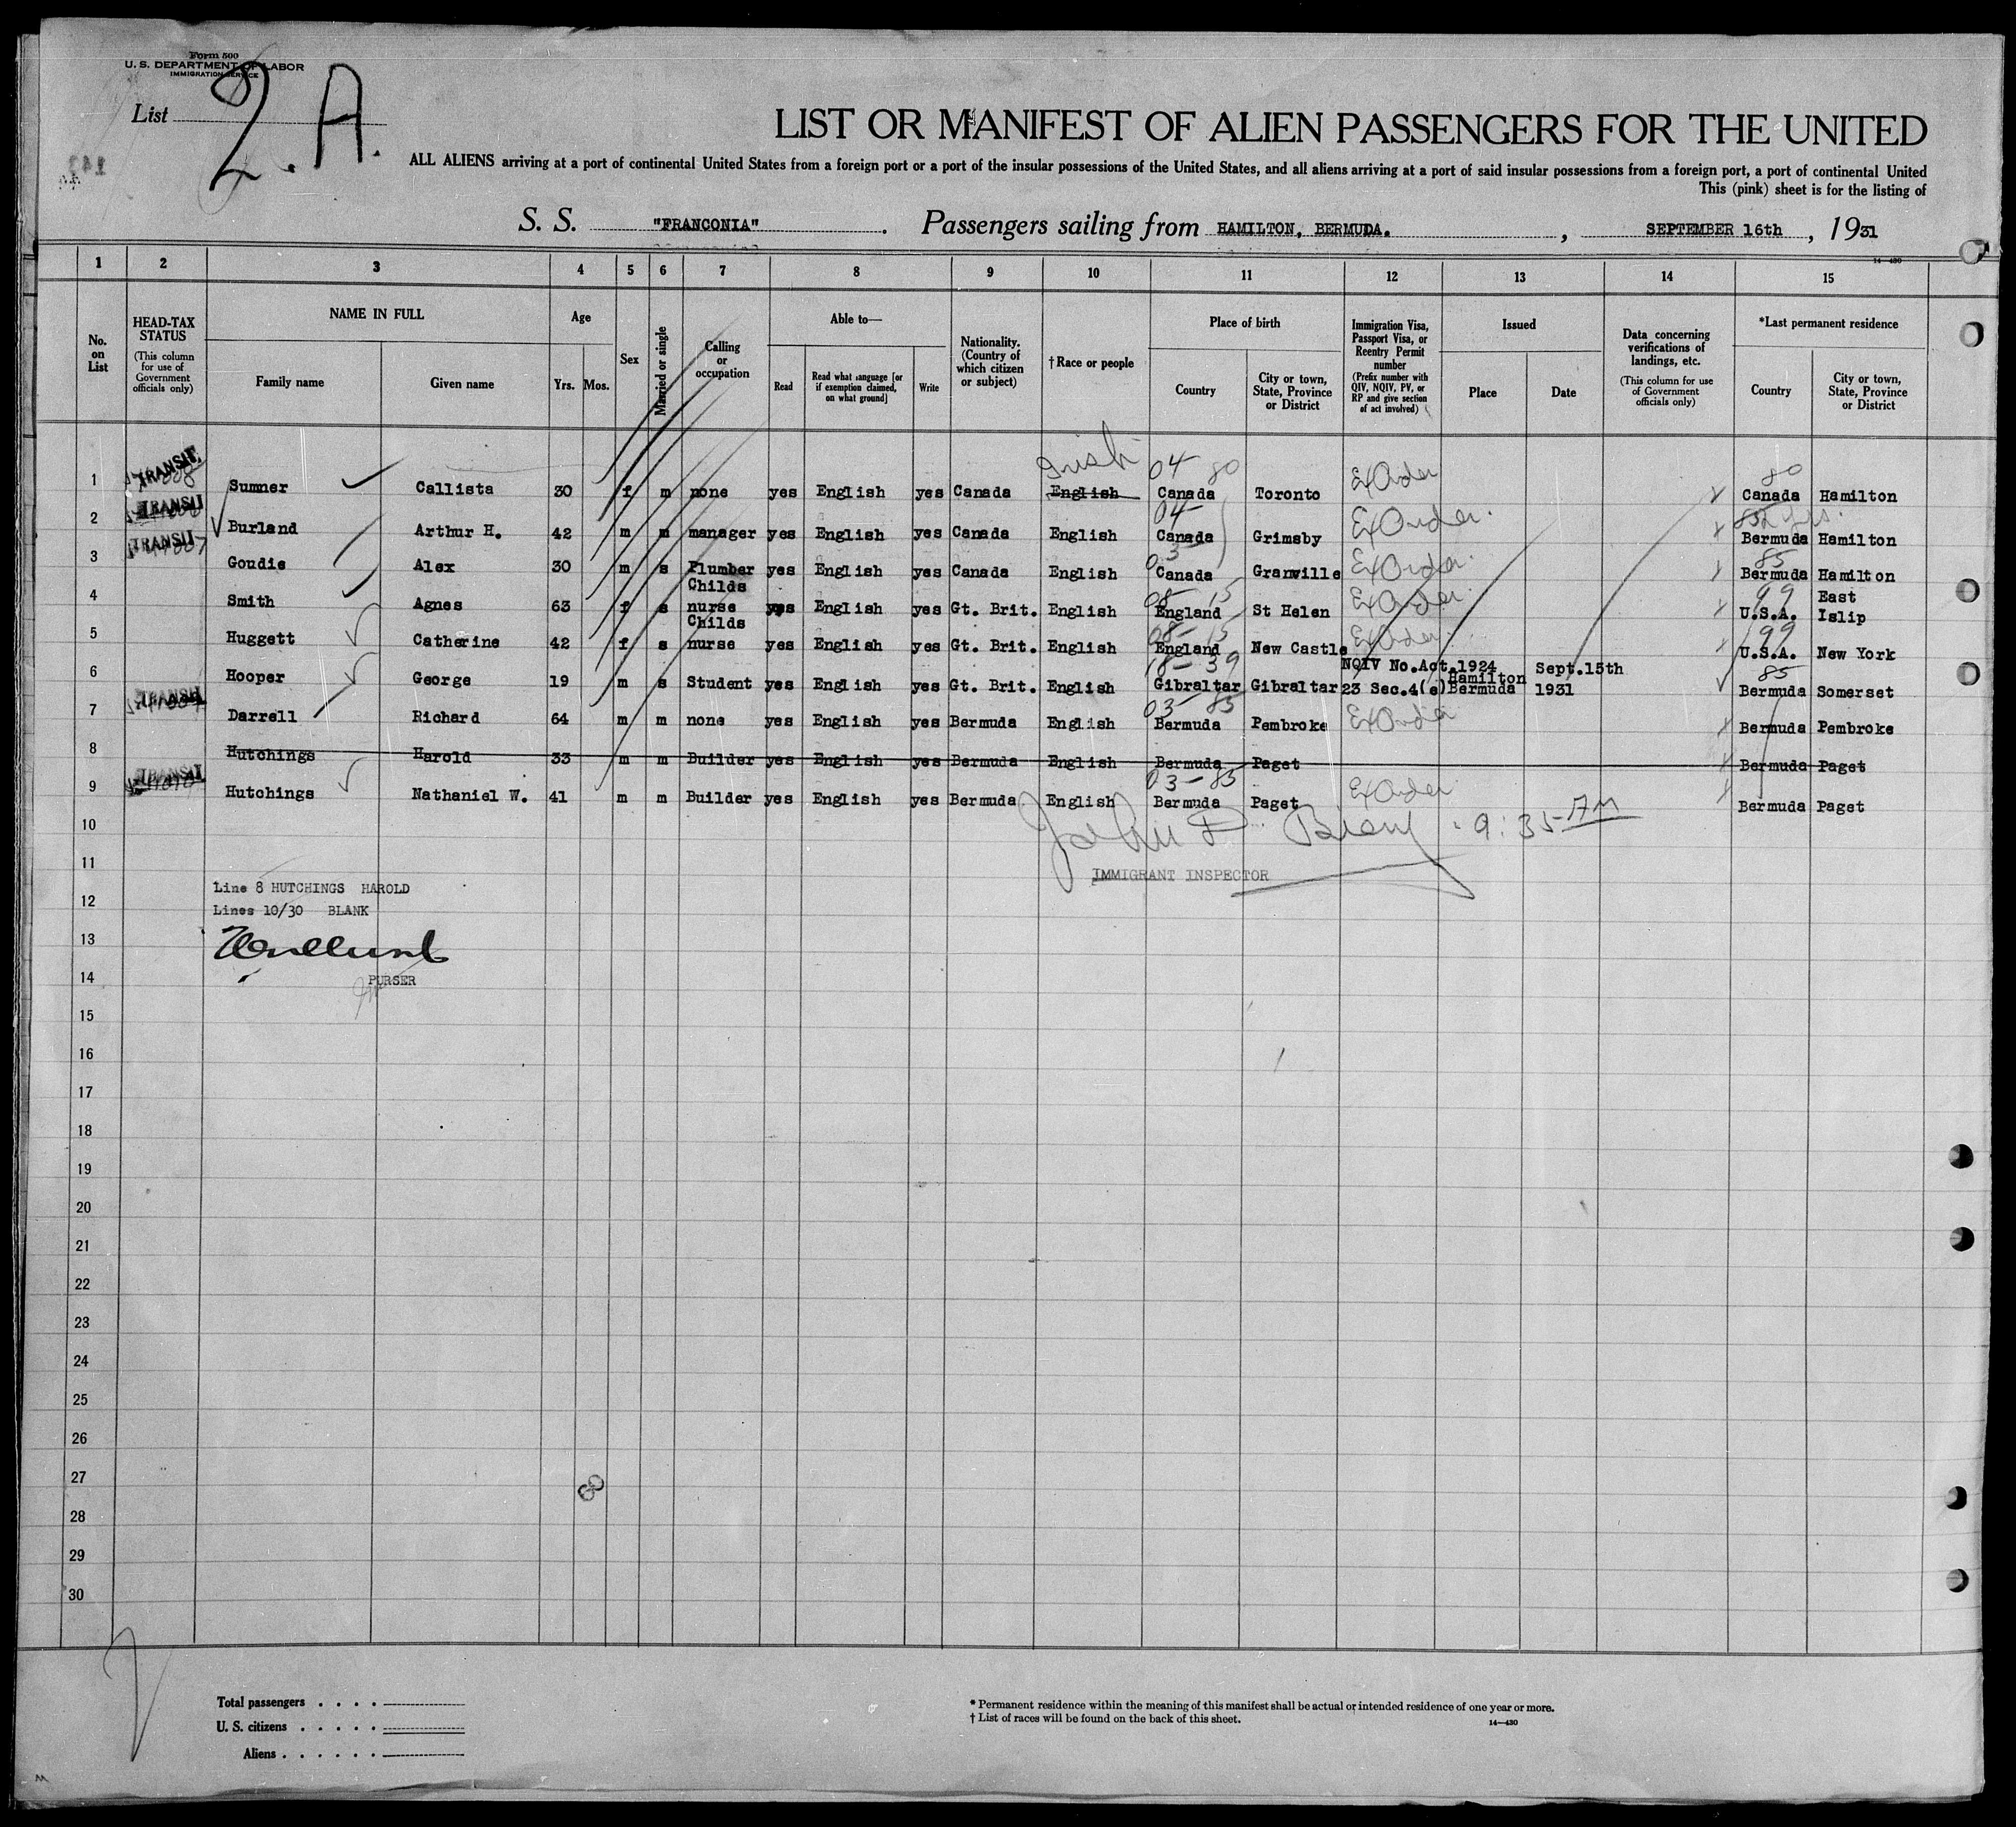 Form 500
U. S. DEPARTMENT OF LABOR
IMMIGRATION SERVICE
List 2. A.
LIST OR MANIFEST OF ALIEN PASSENGERS FOR THE UNITED
ALL ALIENS arriving at a port of continental United States from a foreign port or a port of the insular possessions of the United States, and all aliens arriving at a port of said insular possessions from a foreign port, a port of continental United
This (pink) sheet is for the listing of
S. S. "FRANCONIA". Passengers sailing from HAMILTON, BERMUDA., SEPTEMBER 16th, 1931
14—430
1 2 3 4 5 6 7 8 9 10 11 12 13 14 15
No. on List
HEAD-TAX STATUS (This column for use of Government officials only)
NAME IN FULL
Family name Given name
Age
Yrs. Mos.
Sex
Married or single
Calling or occupation
Able to—
Read Read what language [or if exemption claimed, on what ground] Write
Nationality. (Country of which citizen or subject)
†Race or people
Place of birth
Country City or town, State, Province or District
Immigration Visa, Passport Visa, or Reentry Permit number (Prefix number with QIV, NQIV, PV, or RP and give section of act involved)
Issued
Place Date
Data concerning verifications of landings, etc. (This column for use of Government officials only)
*Last permanent residence
Country City or town, State, Province or District
Irish 04 80 80
1 TRANSIT Sumner Callista 30 f m none yes English yes Canada English Canada Toronto Ex Order Canada Hamilton
04
2 TRANSIT Burland Arthur H. 42 m m manager yes English yes Canada English Canada Grimsby Ex Order. Bermuda Hamilton
03 85
3 TRANSIT Goudie Alex 30 m s Plumber yes English yes Canada English Canada Granville Ex Order. Bermuda Hamilton
08-15 99
4 Smith Agnes 63 f s Childs nurse yes English yes Gt. Brit. English England St Helen Ex Order. U.S.A. East Islip
08-15 99
5 Huggett Catherine 42 f s Childs nurse yes English yes Gt. Brit. English England New Castle Ex Order. U.S.A. New York
18-39 85
6 Hooper George 19 m s Student yes English yes Gt. Brit. English Gibraltar Gibraltar NQIV No.Act.1924 23 Sec.4(e) Hamilton Bermuda Sept.15th 1931 Bermuda Somerset
03-85
7 TRANSIT Darrell Richard 64 m m none yes English yes Bermuda English Bermuda Pembroke Ex Order Bermuda Pembroke
8 Hutchings Harold 33 m m Builder yes English yes Bermuda English Bermuda Paget Bermuda Paget
03-85
9 TRANSIT Hutchings Nathaniel W. 41 m m Builder yes English yes Bermuda English Bermuda Paget Ex Order Bermuda Paget
10
John P. 9:35 AM
11
IMMIGRANT INSPECTOR
Line 8 HUTCHINGS HAROLD
12
Lines 10/30 BLANK
13
14
PURSER
15
16
17
18
19
20
21
22
23
24
25
26
27
28
29
30
Total passengers
U. S. citizens
Aliens
* Permanent residence within the meaning of this manifest shall be actual or intended residence of one year or more.
† List of races will be found on the back of this sheet.
14—430